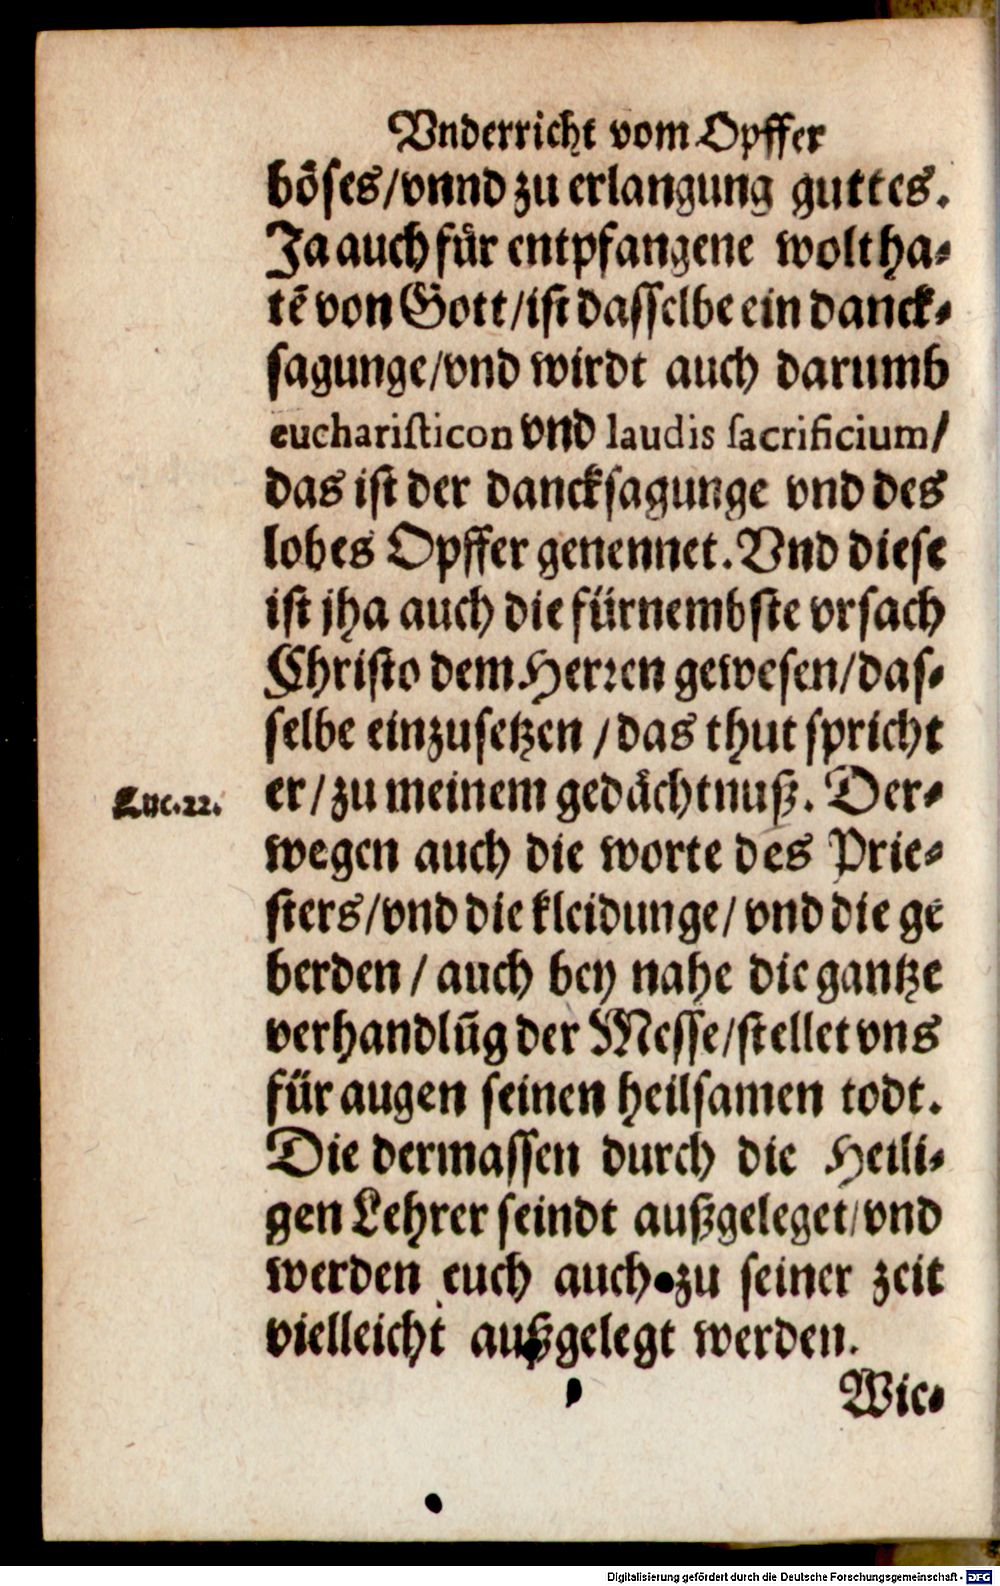 Vnderricht vom Opffer
böses/vnnd zu erlangung guttes.
Ja auch für entpfangene woltha⸗
tē von Gott/ist dasselbe ein danck⸗
sagunge/vnd wirdt auch darumb
eucharisticon vnd laudis sacrificium/
das ist der dancksagunge vnd des
lobes Opffer genennet. Vnd diese
ist jha auch die fürnembste vrsach
Christo dem Herren gewesen/das⸗
selbe einzusetzen/das thut spricht
Luc.22.
er/zu meinem gedächtnuß. Der⸗
wegen auch die worte des Prie⸗
sters/vnd die kleidunge/vnd die ge
berden/auch bey nahe die gantze
verhandlūg der Messe/stellet vns
für augen seinen heilsamen todt.
Die dermassen durch die Heili⸗
gen Lehrer seindt außgeleget/vnd
werden euch auch zu seiner zeit
vielleicht außgelegt werden.
Wie⸗
Digitalisierung gefördert durch die Deutsche Forschungsgemeinschaft - DFG